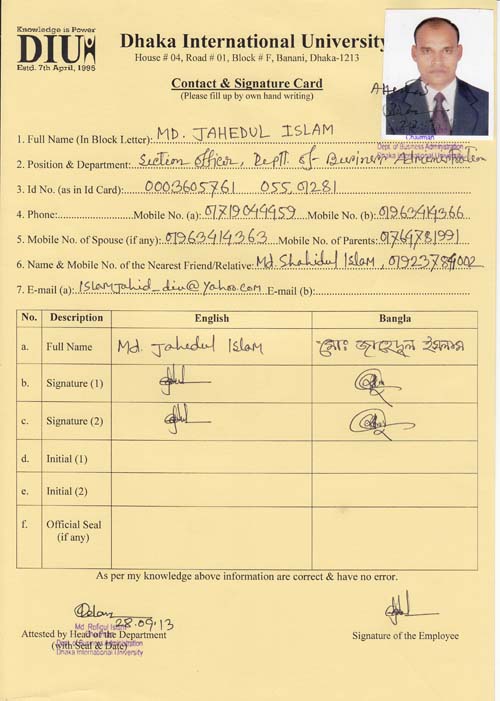 Knowledge is Power
DIU
Estd. 7th April, 1995
Dhaka International University
House # 04, Road # 01, Block # F, Banani, Dhaka-1213
Contact & Signature Card
(Please fill up by own hand writing)
Attested
Chairman
Dept. of Business Administration
1. Full Name (In Block Letter): MD. JAHEDUL ISLAM
2. Position & Department: Section officer, Deptt. of Business Administration
3. Id No. (as in Id Card): 0003605761 055 01281
4. Phone: Mobile No. (a): 01719044959 Mobile No. (b): 01963414366
5. Mobile No. of Spouse (if any): 01963414363 Mobile No. of Parents: 01764781991
6. Name & Mobile No. of the Nearest Friend/Relative: Md. Shahidul Islam, 01923784002
7. E-mail (a): islamjahid_diu@yahoo.com E-mail (b):
No. Description English Bangla
a. Full Name Md. Jahedul Islam মোঃ জাহেদুল ইসলাম
b. Signature (1)
c. Signature (2)
d. Initial (1)
e. Initial (2)
f. Official Seal (if any)
As per my knowledge above information are correct & have no error.
28.09.13
Md. Rafiqul Islam
Chairman
Dept. of Business Administration
Dhaka International University
Attested by Head of the Department
(with Seal & Date)
Signature of the Employee